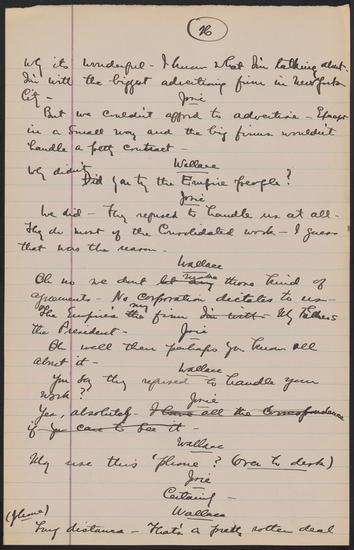 26
Why its wonderful - I know what I'm talking about.
I'm with the biggest advertising firm in New York
City -
Josie
But we couldn't afford to advertise - Except
in a small way and the big firms wouldn't
handle a petty contract -
Wallace
Why didn't
Did you try the Empire people?
Josie
We did - They refused to handle us at all -
They do most of the Consolidated work - I guess
that was the reason -
Wallace
Oh no we don't let any make those kind of
agreements - No corporation dictates to us -
The Empire's the my firm I'm with - My Father's
the President -
Josie
Oh well then perhaps you know all
about it -
Wallace
You say they refused to handle your
work?
Josie
Yes, absolutely - I have all the correspondence
if you care to see it -
Wallace
My use this 'phone? (Over to desk)
Josie
Certainly -
Wallace
(phone)
Long distance - That's a pretty rotten deal